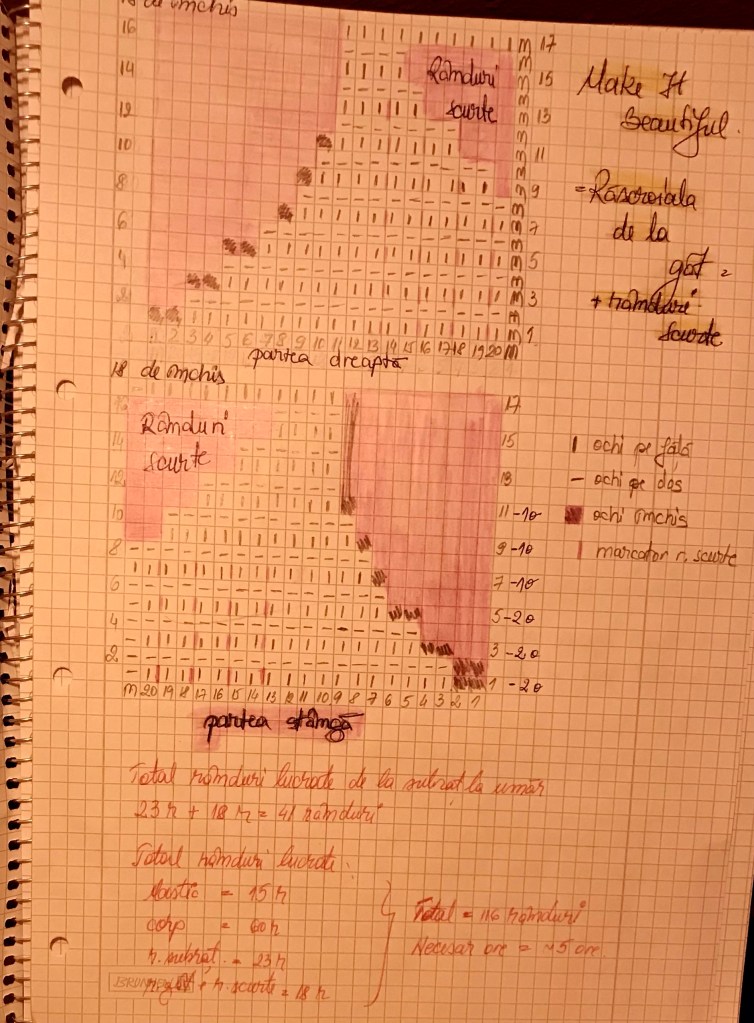 18 de închis
16
14
12
10
8
6
4
2
Rânduri
scurte
m 17
m 15
m 13
m 11
m 9
m 7
m 5
m 3
m 1
1 2 3 4 5 6 7 8 9 10 11 12 13 14 15 16 17 18 19 20 m
partea dreaptă
Make It
Beautiful.
= Răscroiala
de la
gât =
+ rânduri
scurte
18 de închis
16
14
12
10
8
6
4
2
Rânduri
scurte
17
15
13
11 -1o
9 -1o
7 -1o
5 -2o
3 -2o
1 -2o
m 20 19 18 17 16 15 14 13 12 11 10 9 8 7 6 5 4 3 2 1
partea stângă
ochi pe față
ochi pe dos
ochi închis
marcator r. scurte
Total rânduri lucrate de la subraț la umăr
23 r + 18 r = 41 rânduri
Total rânduri lucrate:
elastic = 15 r
corp = 60 r
r. subraț. = 23 r
+ r. scurte = 18 r
Total = 116 rânduri
Necesar ore = ~5 ore